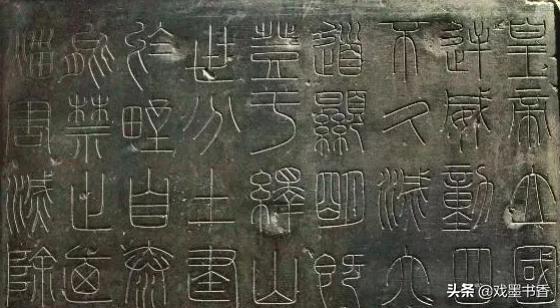 皇帝立國
逆威動四
不久滅六
道顯明既
登于繹山
世分土建
於野自泰
能禁止迺
害滅除
头条 @戏墨书香